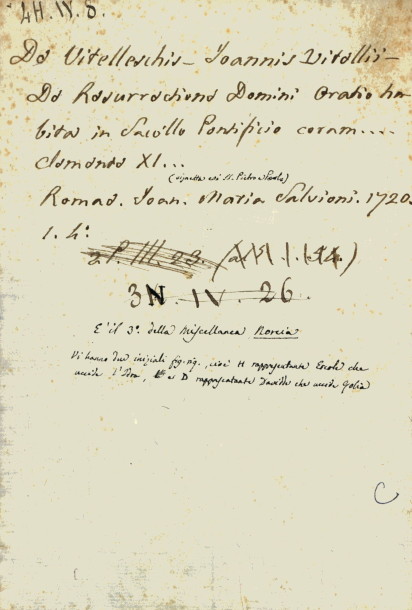 4H.IV.8.
De Vitelleschis - Joannis Vitellii -
De Resurrectione Domini Oratio ha-
bita in Sacello Pontificio coram....
Clemente XI...
(vignetta coi SS. Pietro e Paolo)
Romae. Joan. Maria Salvioni. 1720.
1. 4º
2P. III. 23.
3N. IV. 26.
E' il 3º della Miscellanea Norcia
Vi hanno due iniziali fig. , cioè H rappresentante Ercole che
uccide l'Idra, e D rappresentante Davidde che uccide Golia
C